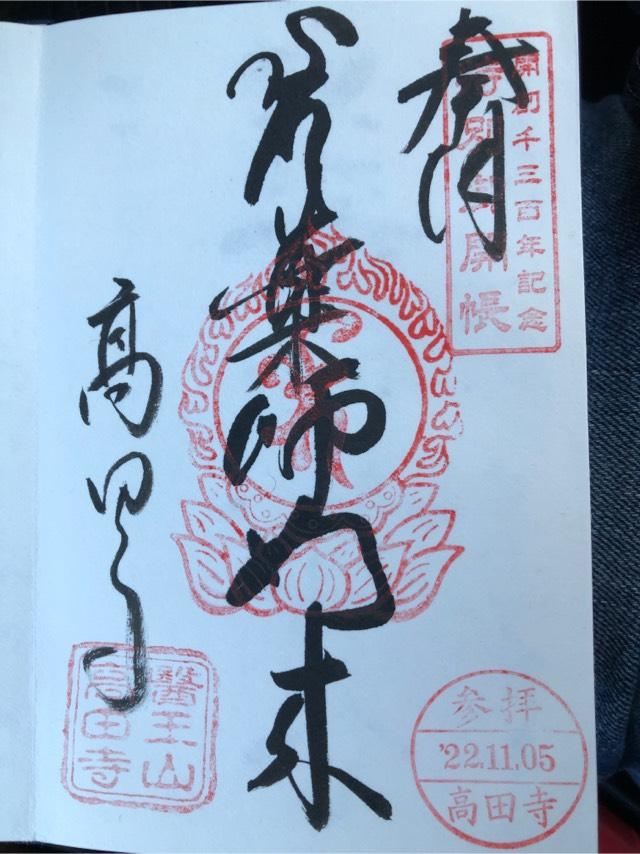 開創千三百年記念
特別御開帳
奉
薬師如来
高田寺
醫王山
高田寺
参拝
'22.11.05
高田寺